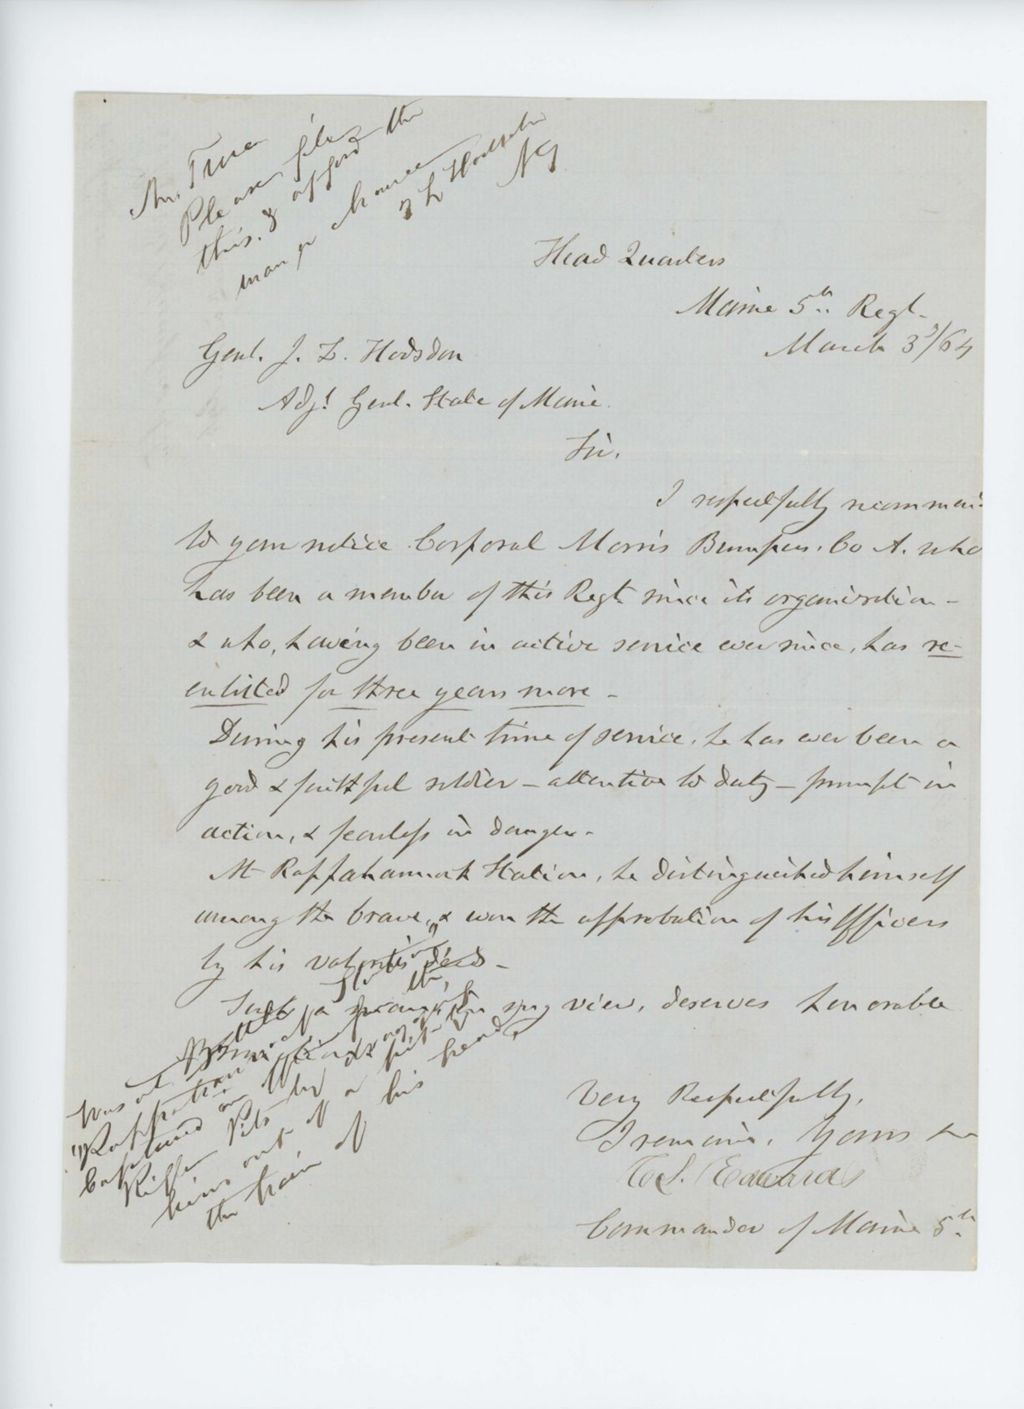 Mr. True
Please file
this, & afford the
man a chance
J L Hodsdon
AG
Head Quarters
Maine 5th Regt.
March 3d/64
Genl. J. L. Hodsdon
Adjt Genl. State of Maine.
Sir.
I respectfully recommend
to your notice Corporal Morris Bumpus. Co A. who
has been a member of this Regt since its organization -
& who, having been in active service ever since, has re-
enlisted for three years more -
During his present time of service, he has ever been a
good & faithful soldier - attentive to duty - prompt in
action, & fearless in danger -
At Rappahannock Station, he distinguished himself
among the brave, & won the approbation of his Officers
by his deeds -
Such a my view, deserves honorable
Very Respectfully,
I remain, Yours
C. S. Edwards
Commander of Maine 5th
was at
"Rappahannock Station"
Captured an
Rifle Pits by
him out of a pit by
the hair of his head,